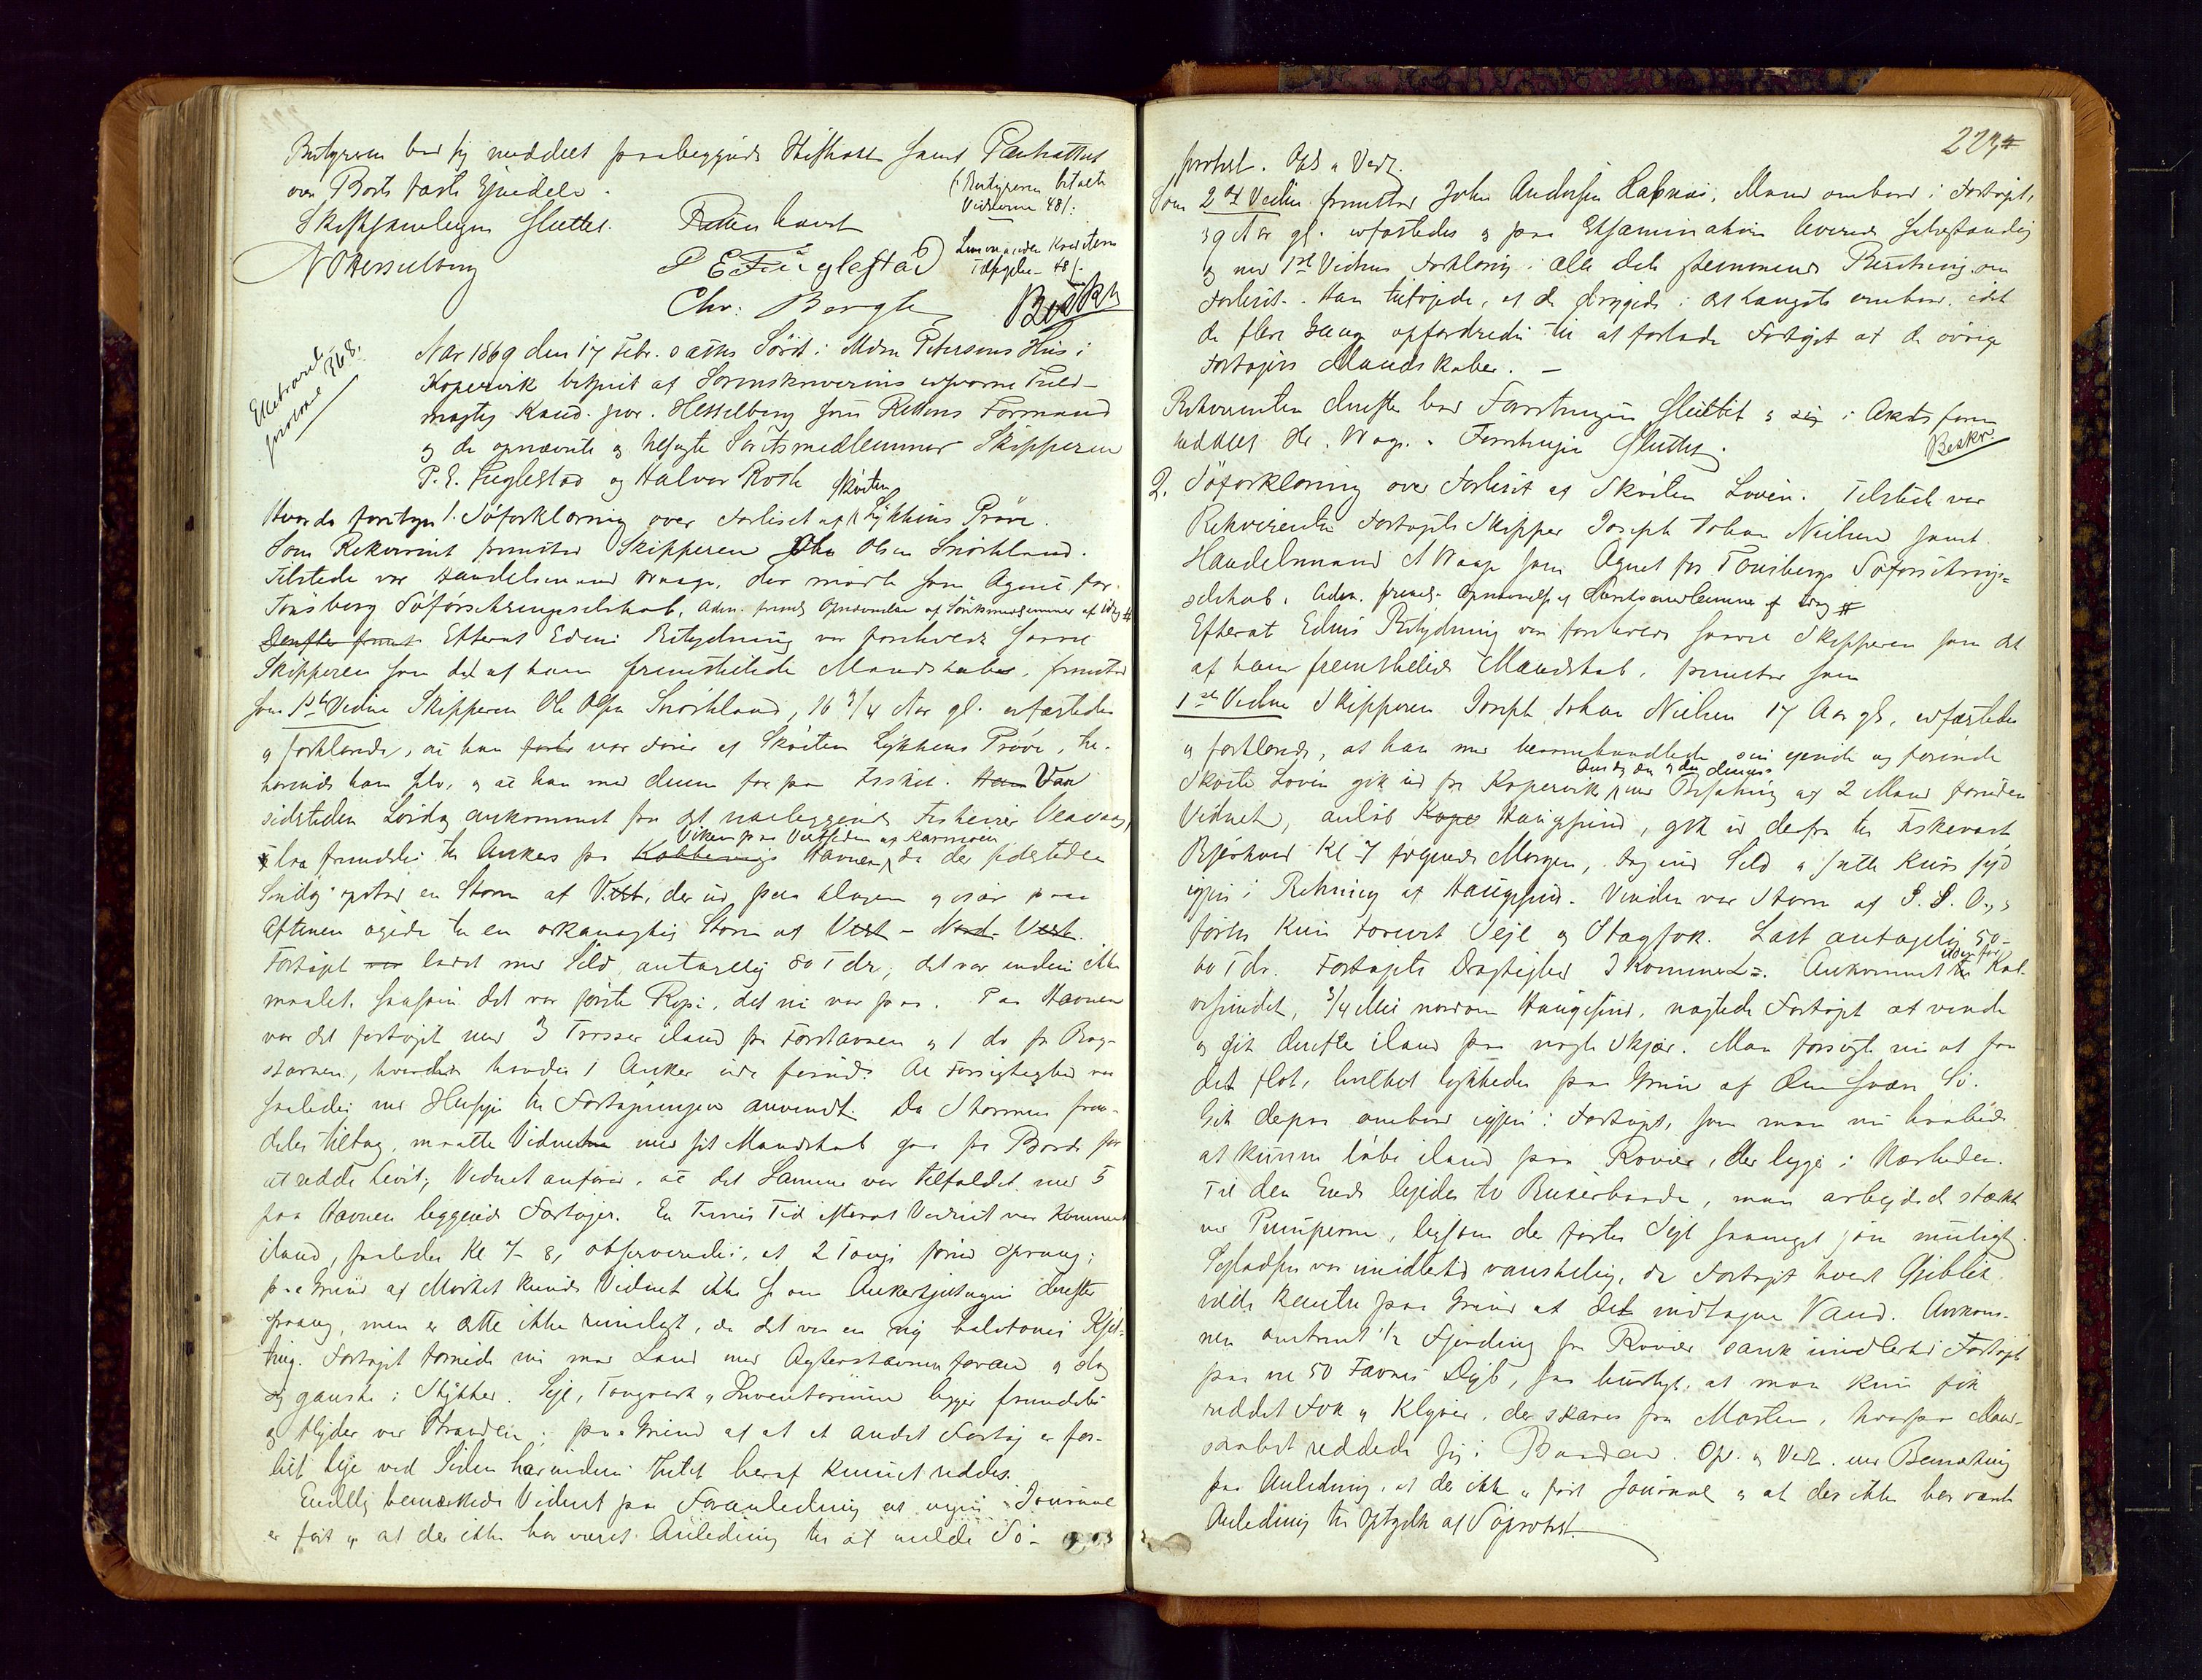 Bestyreren bad sig meddelt foranliggende Skifteakt samt Panteattest
over Boets faste Ejendele.
(: Bestyreren betalte
Vidnerne 48 /:
Skiftesamlingen sluttet. Retten hævet
N Hesselberg P E Fuglestad
Chr: Bergh
Beskr
Extraret
protocol 368.
Aar 1869 den 17 Febr. sattes Söret i Mdm Petersens Hus i
Kopervik betjent af Sorenskriverens edsvorne Fuld-
mægtig Kand. jur. Hesselberg som Rettens Formand
og de opnævnte og Söretsmedlemmer Skipperne
P. E. Fuglestad og Halvor Roth
Hvorda foretoges 1. Söforklaring over Forliset af Skøiten Lykkens Pröve.
Som Rekvirent fremstod Skipperen Ole Olsen Snörteland.
Tilstede var Handelsmand Waage, der mødte som Agent for
Tönsberg Söforsikringsselskab. Adm. fremlagde Opnævnelse af Söretsmedlemmer af idag #
Derefter fremst. Efterat Edens Betydning var foreholdt saavel
Skipperen som det af ham fremstillede Mandskab, fremstod
som 1ste Vidne Skipperen Ole Olsen Snörteland, 16 3/4 Aar gl. edfæstedes
og forklarede, at han førte var Fører af Skøiten Lykkens Pröve, til-
hørende ham selv, og at han med denne for paa Fiskeri. Han Var
sidstleden Lördag ankommet fra det nærliggende Fiskevær Veavaag,
Viken paa Vestsiden af Karmøen
laa fremdeles til Ankers paa Kobbervigs Havnen, da der sidstleden
Søndag opstod en Storm af Vest, der ud paa Dagen og især paa
Aftenen øgede til en orkanagtig Storm af Vest - Nord - Vest.
Fartøjet var ladet med Sild, antagelig 80 Tdr, det var endnu ikke
maalt, saasom det var første Rejse, det nu var paa. Paa Havnen
var det fortøjet med 3 Trosser iland fra Forstavnen og 1 do fra Bag-
stavnen, hvorhos havdes 1 Anker ude forud. Al Forsigtighed var
saaledes med Hensyn til Fortøjningen anvendt. Da Stormen frem-
deles tiltog, maatte Vidnet med sit Mandskab gaa fra Borde for
at redde Livet; Vidnet anfører, at det Samme var Tilfældet med 5
paa Havnen liggende Fartøjer. En Times Tid efterat Vidnet var kommet
iland, saaledes Kl 7-8, observeredes, at 2 Touge forud sprang;
paa Grund af Mørket kunde Vidnet ikke se om Ankerkjettingen derefter
sprang, men er dette ikke rimeligt, da det var en ny Kjet-
ting. Fartøjet tørnede nu mod Land med Agterstavnen foran og slog
sig ganske i Stykker. Sejl, Tougværk og Inventarium ligger fremdeles
og flyder ved Stranden; paa Grund af at et andet Fartøj er for-
list lige ved Siden har endnu Intet heraf kunnet reddes.
Endelig bemærkede Vidnet paa Foranledning at ingen Journal
er ført og at der ikke har været Anledning til at melde Sö-
223
protest. Opl. og Vedt.
Som 2det Vidne fremstod John Andersen Hapnæs, Mand ombord i Fartøjet,
39 Aar gl. edfæstedes og paa Examination leverede selvstændig
og med 1ste Vidnes Forklaring i alle Dele stemmende Beretning om
Forliset. Han tilføjede, at de drøjede i det Længste ombord, idet
de flere Gange opfordredes til at forlade Fartøjet af de øvrige
Fartøjers Mandskaber. —
Rekvirenten derefter bad Forretningen sluttet og sig i Aktsform
meddelt Hr. Waage. Forretningen sluttet.
Beskr.
2. Söforklaring over Forliset af Skøiten Lovise. Tilstede var
Rekvirenten Fartøjets Skipper Joseph Johan Nielsen samt
Handelsmand A Waage som Agent for Tönsbergs Söforsikrings-
selskab. Adm. freml. Opnævnelse af Söretsmedlemmer af idag #
Efterat Edens Betydning var foreholdt saavel Skipperen som det
af ham fremstillede Mandskab, fremstod som
1ste Vidne Skipperen Joseph Johan Nielsen 17 Aar gl., edfæstedes
og forklarede, at han med heromhandlede sin ejende og førende
Skøite Lovise gik ud fra Kopervik med Besætning af 2 Mand foruden
Vidnet, anløb Kope Haugesund, gik ud derfra til Fiskevært
Bjørhovd Kl 7 følgende Morgen, tog ind Sild og satte Kurs syd
igjen i Retning af Haugesund. Vinden var Storm af S. S. O., og
førtes kun Forrevet Sejl og Stagfok. Last antagelig 50-
60 Tdr. Fartøjets Drægtighed 3 Kommerce=. Ankommet
3/4 Mil nordom Haugesund, nægtede Fartøjet at vende
og gik derefter iland paa nogle Skjær. Man forsøgte nu at faa
det flot, hvilket lykkedes paa Grund af den svære Sö.
Gik derpaa ombord igjen i Fartøjet, som man nu haabede
at kunne løbe iland paa Rovær, der ligger i Nærheden.
Til den Ende lejedes to Buxerbaade, man arbejdede stærkt
ved Pumperne, ligesom der førtes Sejl saameget som muligt.
Sejladsen var imidlertid vanskelig, da Fartøjet hvert Øjeblik
vilde kæntre paa Grund af det indtagne Vand. Ankom-
men omtrent 1/2 Fjerding fra Rovær sank imidlertid Fartøjet
paa en 50 Favnes Dyb, saa hurtigt, at man kun fik
reddet Fok og Klyver, der skares fra Masten, hvorpaa Mand-
skabet reddede sig i Baaden. Opl. og Vedt. med Bemærkning
paa Anledning, at der ikke er ført Journal og at der ikke har været
Anledning til Optagelse af Söprotest.